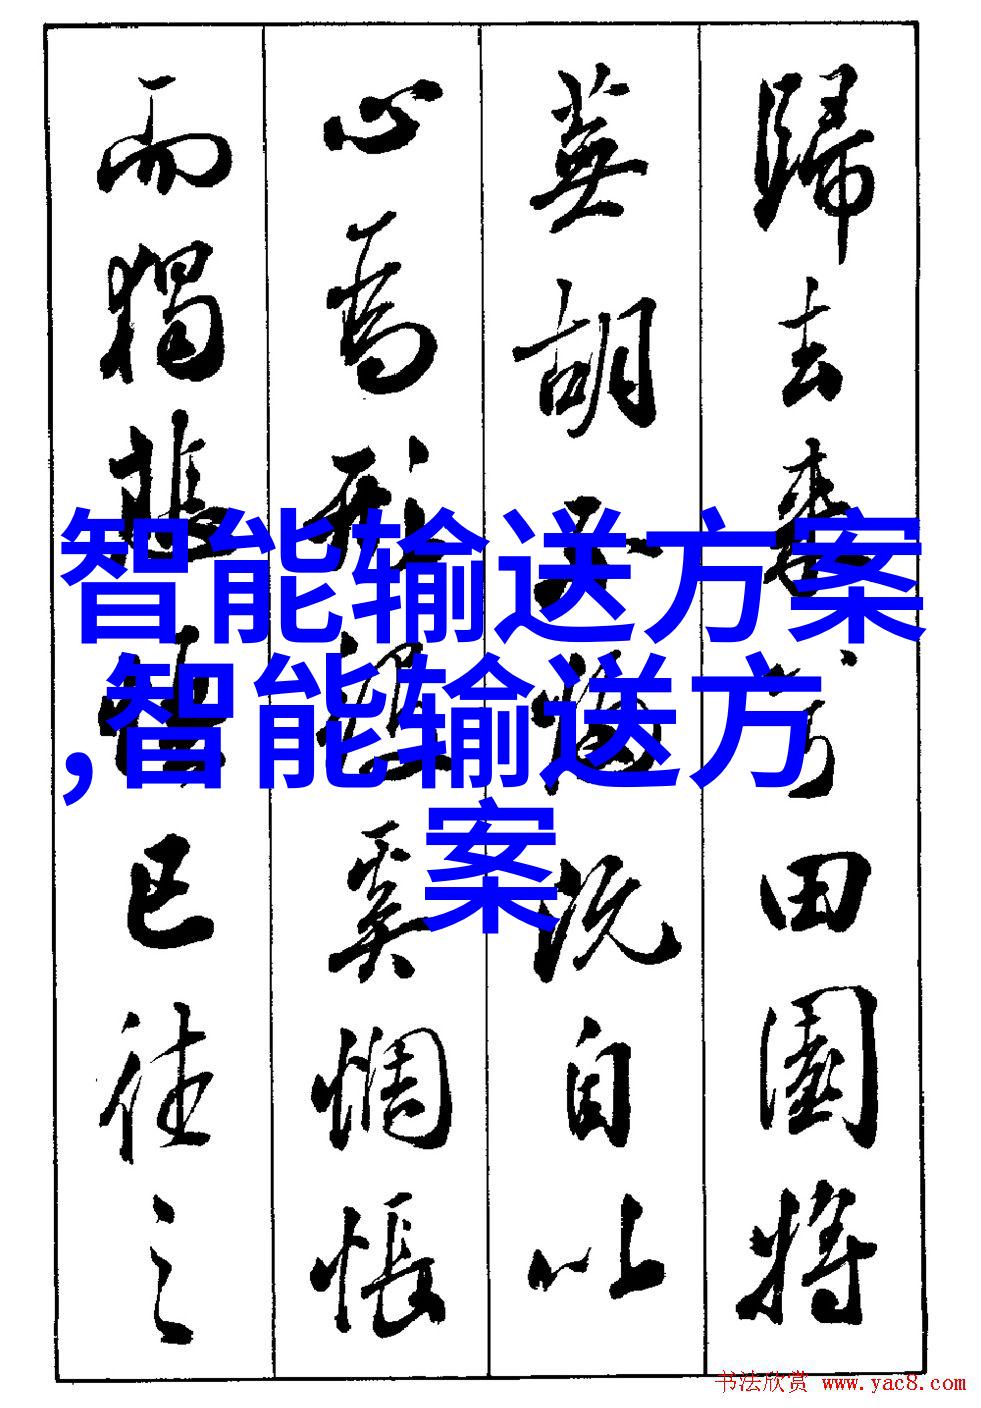 歸去來兮田園將
蕪胡不歸既自以
心為形役奚惆悵
而獨悲悟已往之
智能输送方案
,智能输送方
案
书法欣赏 www.yac8.com